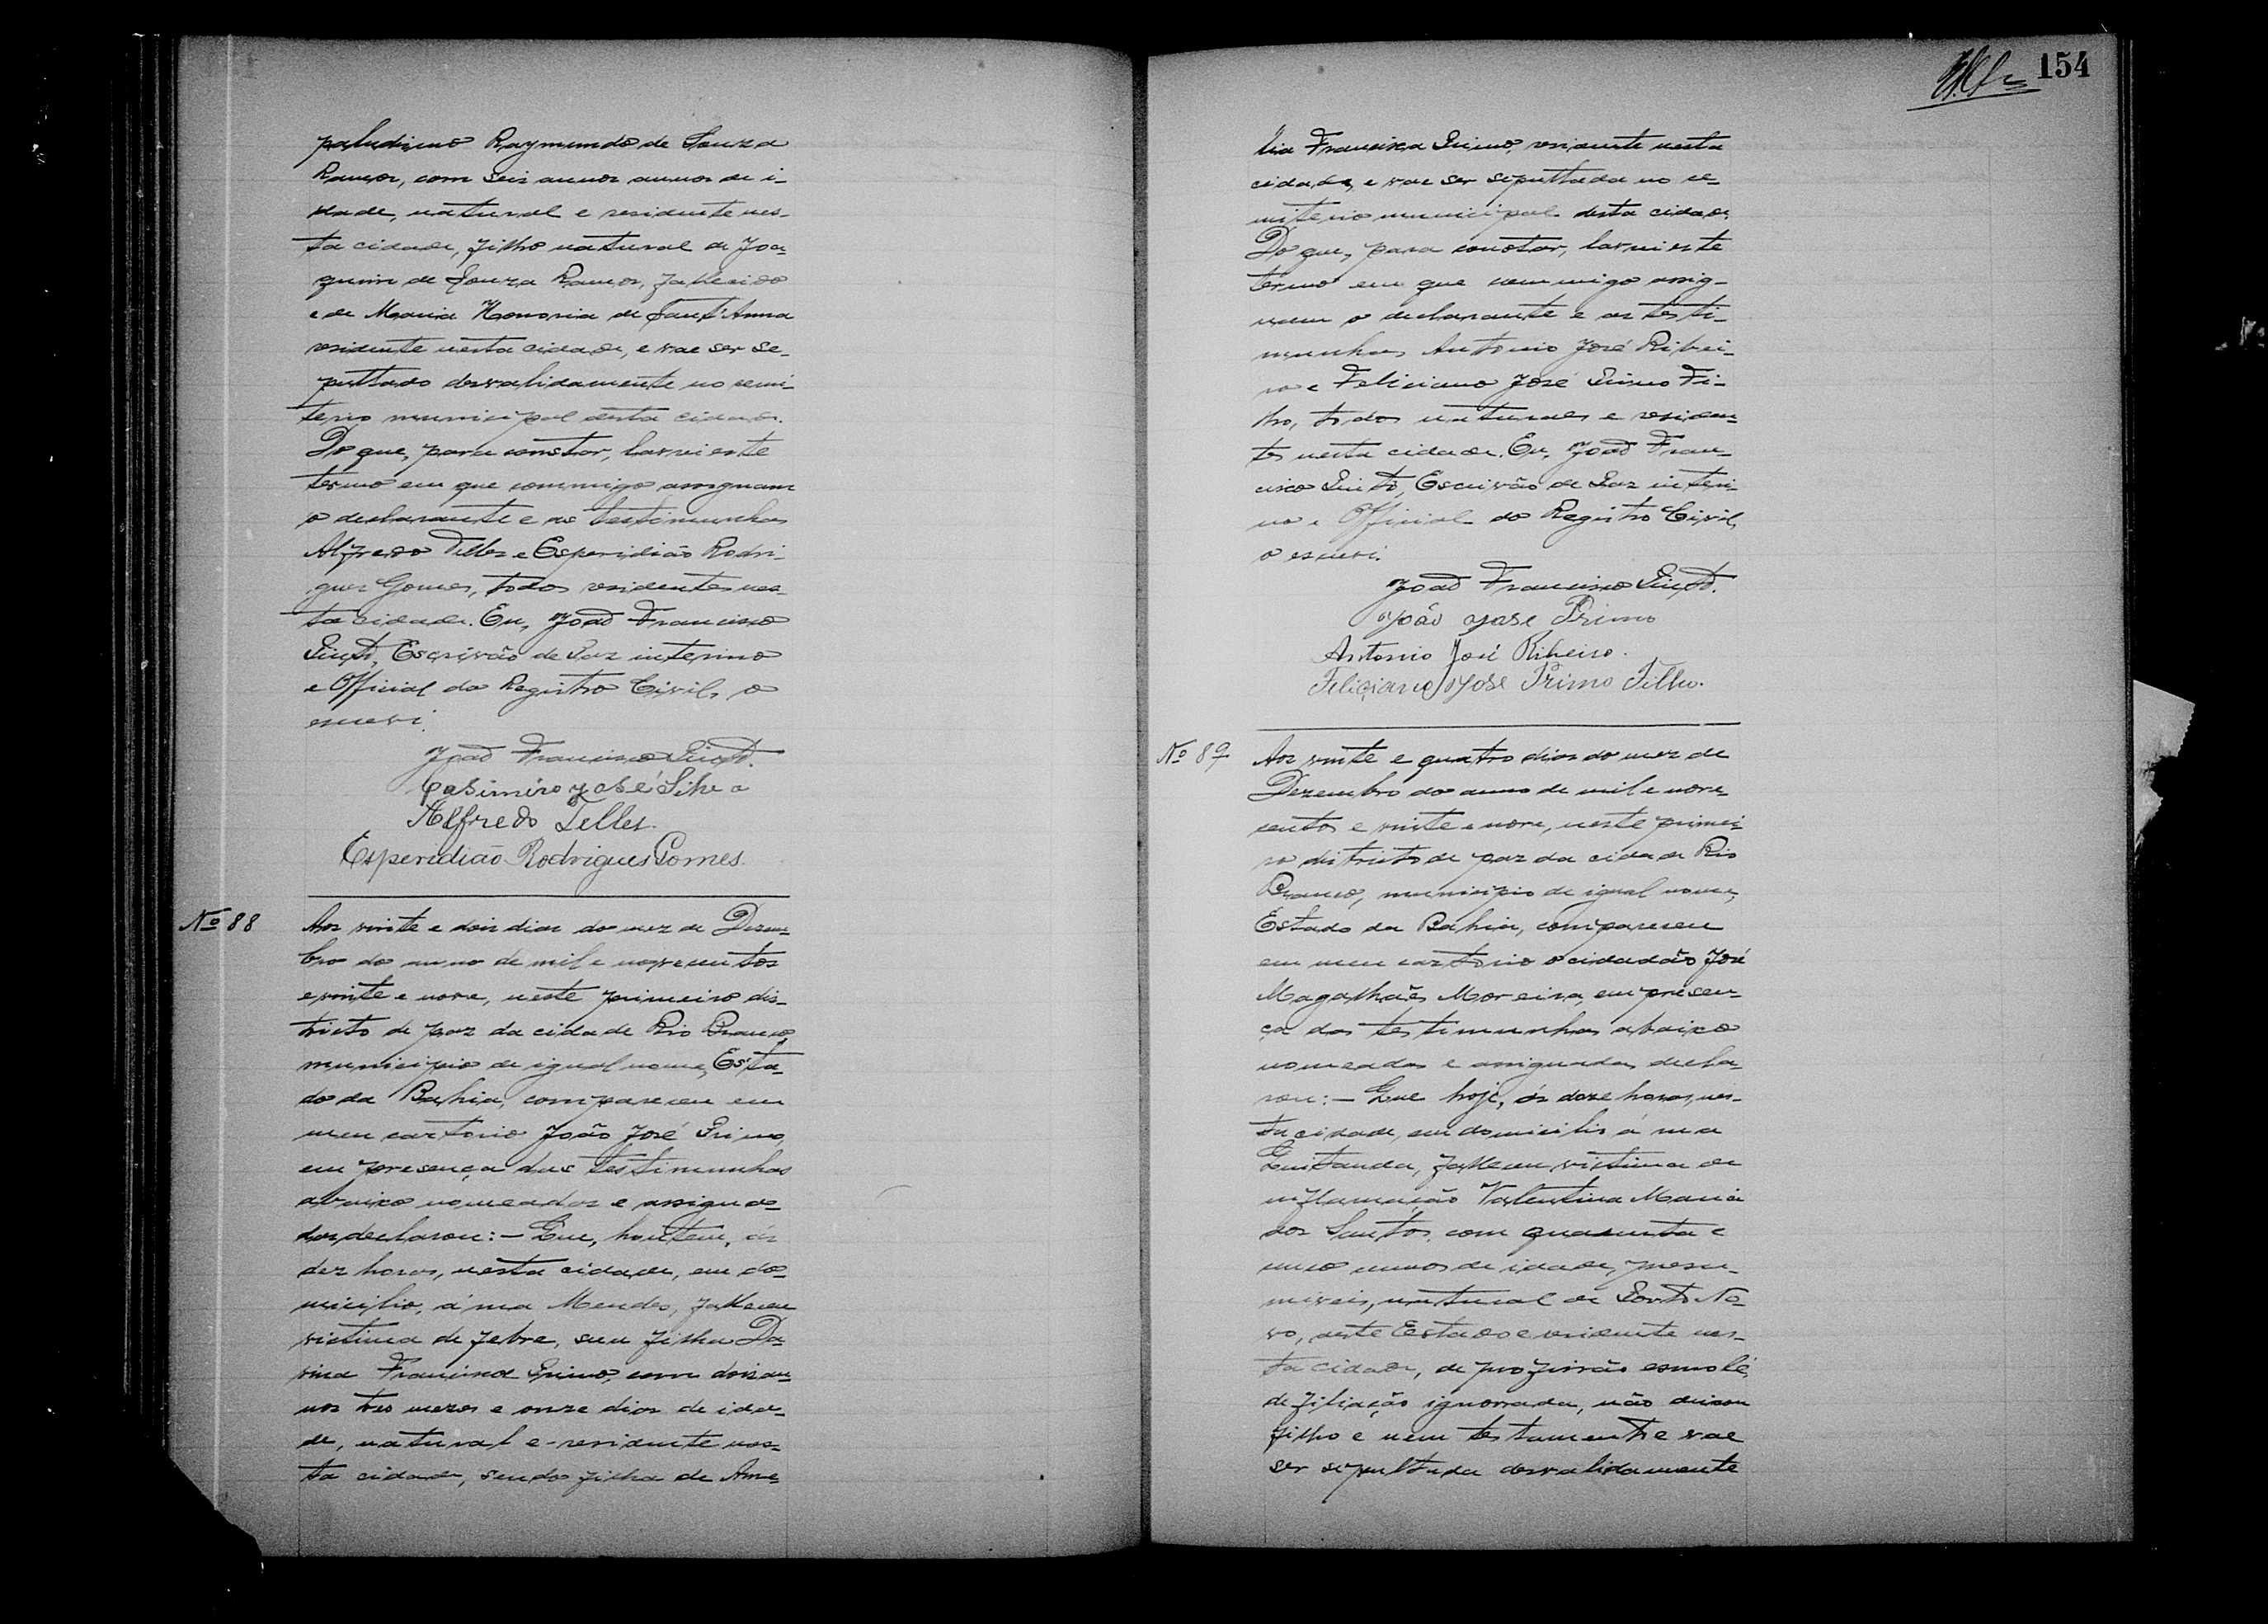 paludismo Raymundo de Souza
Ramos, com seis annos annos de i-
dade, natural e residente nes-
ta cidade, filho natural de Joa-
quim de Souza Ramos, fallecido
e de Maria Honoria de Sant'Anna
residente nesta cidade, e vae ser se-
pultado desvalidamente no cemi-
terio municipal desta cidade.
Do que, para constar, lavrei este
termo em que commigo assignam
o declarante e as testimunhas
Alfredo Telles e Esperidião Rodri-
gues Gomes, todos residentes nes-
ta cidade. Eu, João Francisco
Pinto, Escrivão de Paz interino
e Official do Registro Civil, o
escrevi.
João Francisco Pinto.
Casimiro José Silva
Alfredo Telles.
Esperidião Rodrigues Gomes.
Nº 88
Aos vinte e dois dias do mez de Dezem-
bro do anno de mil e novecentos
e vinte e nove, neste primeiro dis-
tricto de paz da cidade Rio Branco,
municipio de igual nome, Esta-
do da Bahia, compareceu em
meu cartorio João José Primo,
em presença das testimunhas
abaixo nomeadas e assigna-
das, declarou: - Que, hontem, ás
dez horas, nesta cidade, em do-
micilio, á rua Mendes, falleceu
victima de febre, sua filha Da-
vina Francisca Primo, com dois an-
nos tres mezes e onze dias de ida-
de, natural e residente nes-
ta cidade, sendo filha de Ame-
154
lia Francisca Primo, residente nesta
cidade, e vae ser sepultada no ce-
miterio municipal desta cidade.
Do que, para constar, lavrei este
termo em que commigo assig-
nam o declarante e as testi-
munhas Antonio José Ribei-
ro e Feliciano José Primo Fi-
lho, todos naturaes e residen-
tes nesta cidade. Eu, João Fran-
cisco Pinto, Escrivão de Paz interi-
no e Official do Registro Civil,
o escrevi.
João Francisco Pinto.
João José Primo
Antonio José Ribeiro.
Feliciano José Primo Filho.
Nº 89
Aos vinte e quatro dias do mez de
Dezembro do anno de mil e nove-
centos e vinte e nove, neste primei-
ro districto de paz da cidade Rio
Branco, municipio de igual nome,
Estado da Bahia, compareceu
em meu cartorio o cidadão José
Magalhães Moreira, em presen-
ça das testimunhas abaixo
nomeadas e assignadas, decla-
rou: - Que hoje, ás doze horas, nes-
ta cidade, em domicilio á rua
Quitanda, falleceu victima de
inflamação Valentina Maria
dos Santos, com quarenta e
cinco annos de idade, presu-
miveis, natural de Porto No-
vo, deste Estado e residente nes-
ta cidade, de profissão esmolé,
de filiação ignorada, não deixou
filho e nem testamento e vae
ser sepultada desvalidamente